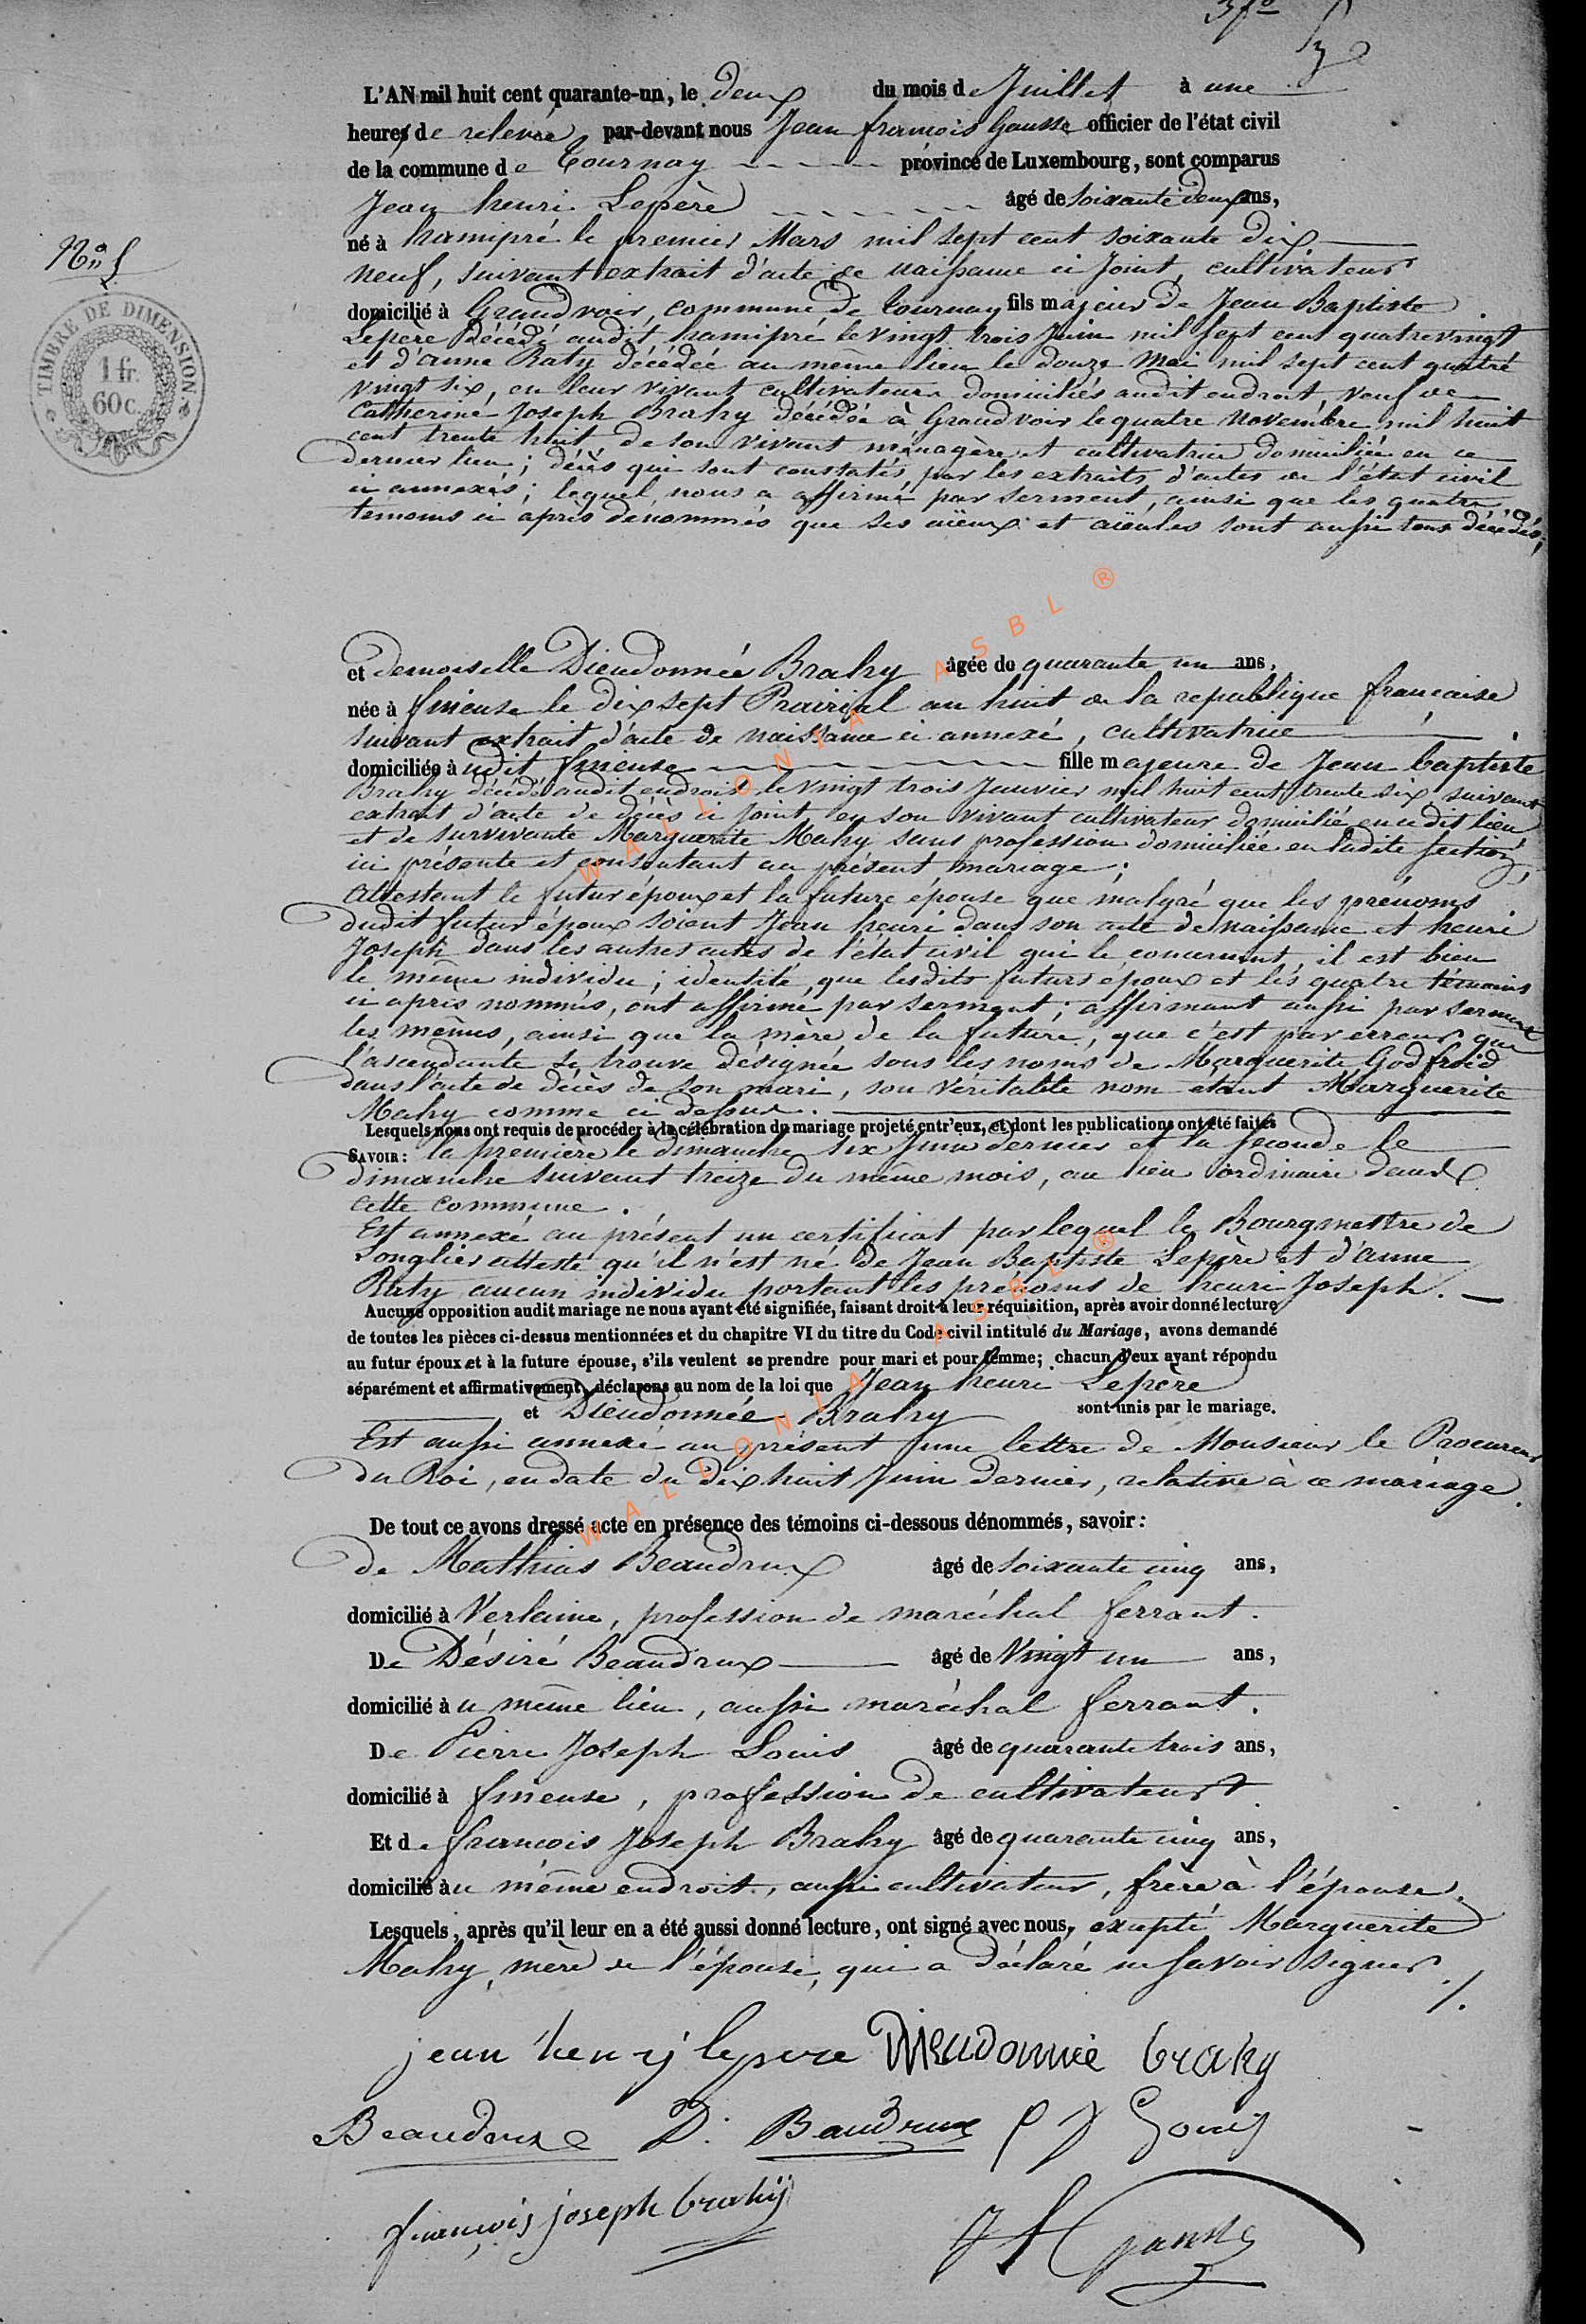 3fo
L'AN mil huit cent quarante-un, le deux du mois de Juillet à une
heures de relevée par-devant nous Jean françois Gausse officier de l'état civil
de la commune de Tournay province de Luxembourg, sont comparus
Jean henri Lepère âgé de soixante deux ans,
né à hamipré le premier Mars mil sept cent soixante dix
neuf, suivant extrait d'acte de naissance ci joint, cultivateur
domicilié à Grandvoir, commune de Tournay fils majeur de Jean Baptiste
Lepère décédé audit hamipré le vingt trois Juin mil sept cent quatrevingt
et d'anne Raty décédée au même lieu le douze Mai mil sept cent quatre
vingt six, en leur vivant cultivateurs domiciliés audit endroit, veuf de
Catherine Joseph Brahy décédée à Grandvoir le quatre novembre mil huit
cent trente huit de son vivant ménagère et cultivatrice domiciliée en ce
dernier lieu; décès qui sont constatés par les extraits d'actes de l'état civil
ci annexés; lequel nous a affirmé par serment, ainsi que les quatre
temoins ci après dénommés que ses aïeux et aïeules sont aussi tous décédés;
No 5
TIMBRE DE DIMENSION
1 fr.
60 c.
et demoiselle Dieudonnée Brahy âgée de quarante un ans,
née à fineuse le dix sept Prairial an huit de la republique française
suivant extrait d'acte de naissance ci annexé, cultivatrice
domiciliée à udit fineuse fille majeure de Jean baptiste
Brahy décédé audit endroit le vingt trois Janvier mil huit cent trente six suivant
extrait d'acte de décès ci joint en son vivant cultivateur domicilié en cedit lieu
et de survivante Marguerite Mahy sans profession domiciliée en ladite section,
ici présente et consentant au présent mariage;
Attestant le futur époux et la future épouse que malgré que les prénoms
dudit futur époux soient Jean henri dans son acte de naissance et henri
Joseph dans les autres actes de l'état civil qui le concernent, il est bien
le même individu; identité, que lesdits futurs époux et les quatre témoins
ci après nommés, ont affirmé par serment; affirmant aussi par serment
les mêmes, ainsi que la mère de la future, que c'est par erreur que
l'ascendante se trouve désignée sous les noms de Marguerite Godfroid
dans l'acte de décès de son mari, son véritable nom étant Marguerite
Mahy comme ci dessus.
Lesquels nous ont requis de procéder à la célébration du mariage projeté entr'eux, et dont les publications ont été faites
SAVOIR: la première le dimanche six Juin dernier et la seconde le
dimanche suivant treize du même mois, au lieu ordinaire dans
cette commune.
Est annexé au présent un certificat par lequel le Bourgmestre de
Longlier atteste qu'il n'est né de Jean Baptiste Lepère et d'anne
Raty aucun individu portant les prénoms de henri Joseph.
Aucune opposition audit mariage ne nous ayant été signifiée, faisant droit à leur réquisition, après avoir donné lecture
de toutes les pièces ci-dessus mentionnées et du chapitre VI du titre du Code civil intitulé du Mariage, avons demandé
au futur époux et à la future épouse, s'ils veulent se prendre pour mari et pour femme; chacun d'eux ayant répondu
séparément et affirmativement, déclarons au nom de la loi que Jean henri Lepère
et Dieudonnée Brahy sont unis par le mariage.
Est aussi annexé au présent une lettre de Monsieur le Procureur
du Roi, en date du dix huit Juin dernier, relative à ce mariage.
De tout ce avons dressé acte en présence des témoins ci-dessous dénommés, savoir:
de Mathias Beaudrux âgé de soixante cinq ans,
domicilié à Verlaine, profession de maréchal ferrant.
De Désiré Beaudrux âgé de Vingt un ans,
domicilié à u même lieu, aussi maréchal ferrant.
De Pierre Joseph Louis âgé de quarante trois ans,
domicilié à fineuse, profession de cultivateur
Et de francois Joseph Brahy âgé de quarante cinq ans,
domicilié à u même endroit, aussi cultivateur, frère à l'épouse.
Lesquels, après qu'il leur en a été aussi donné lecture, ont signé avec nous, excepté Marguerite
Mahy, mère de l'épouse, qui a déclaré ne savoir signer ./.
jean henrÿ lepere Dieudonnée brahy
Beaudrux D. Baudrux P J Louis
françois joseph brahÿ
J f Gausse
WALLONIA ASBL ®
WALLONIA ASBL ®